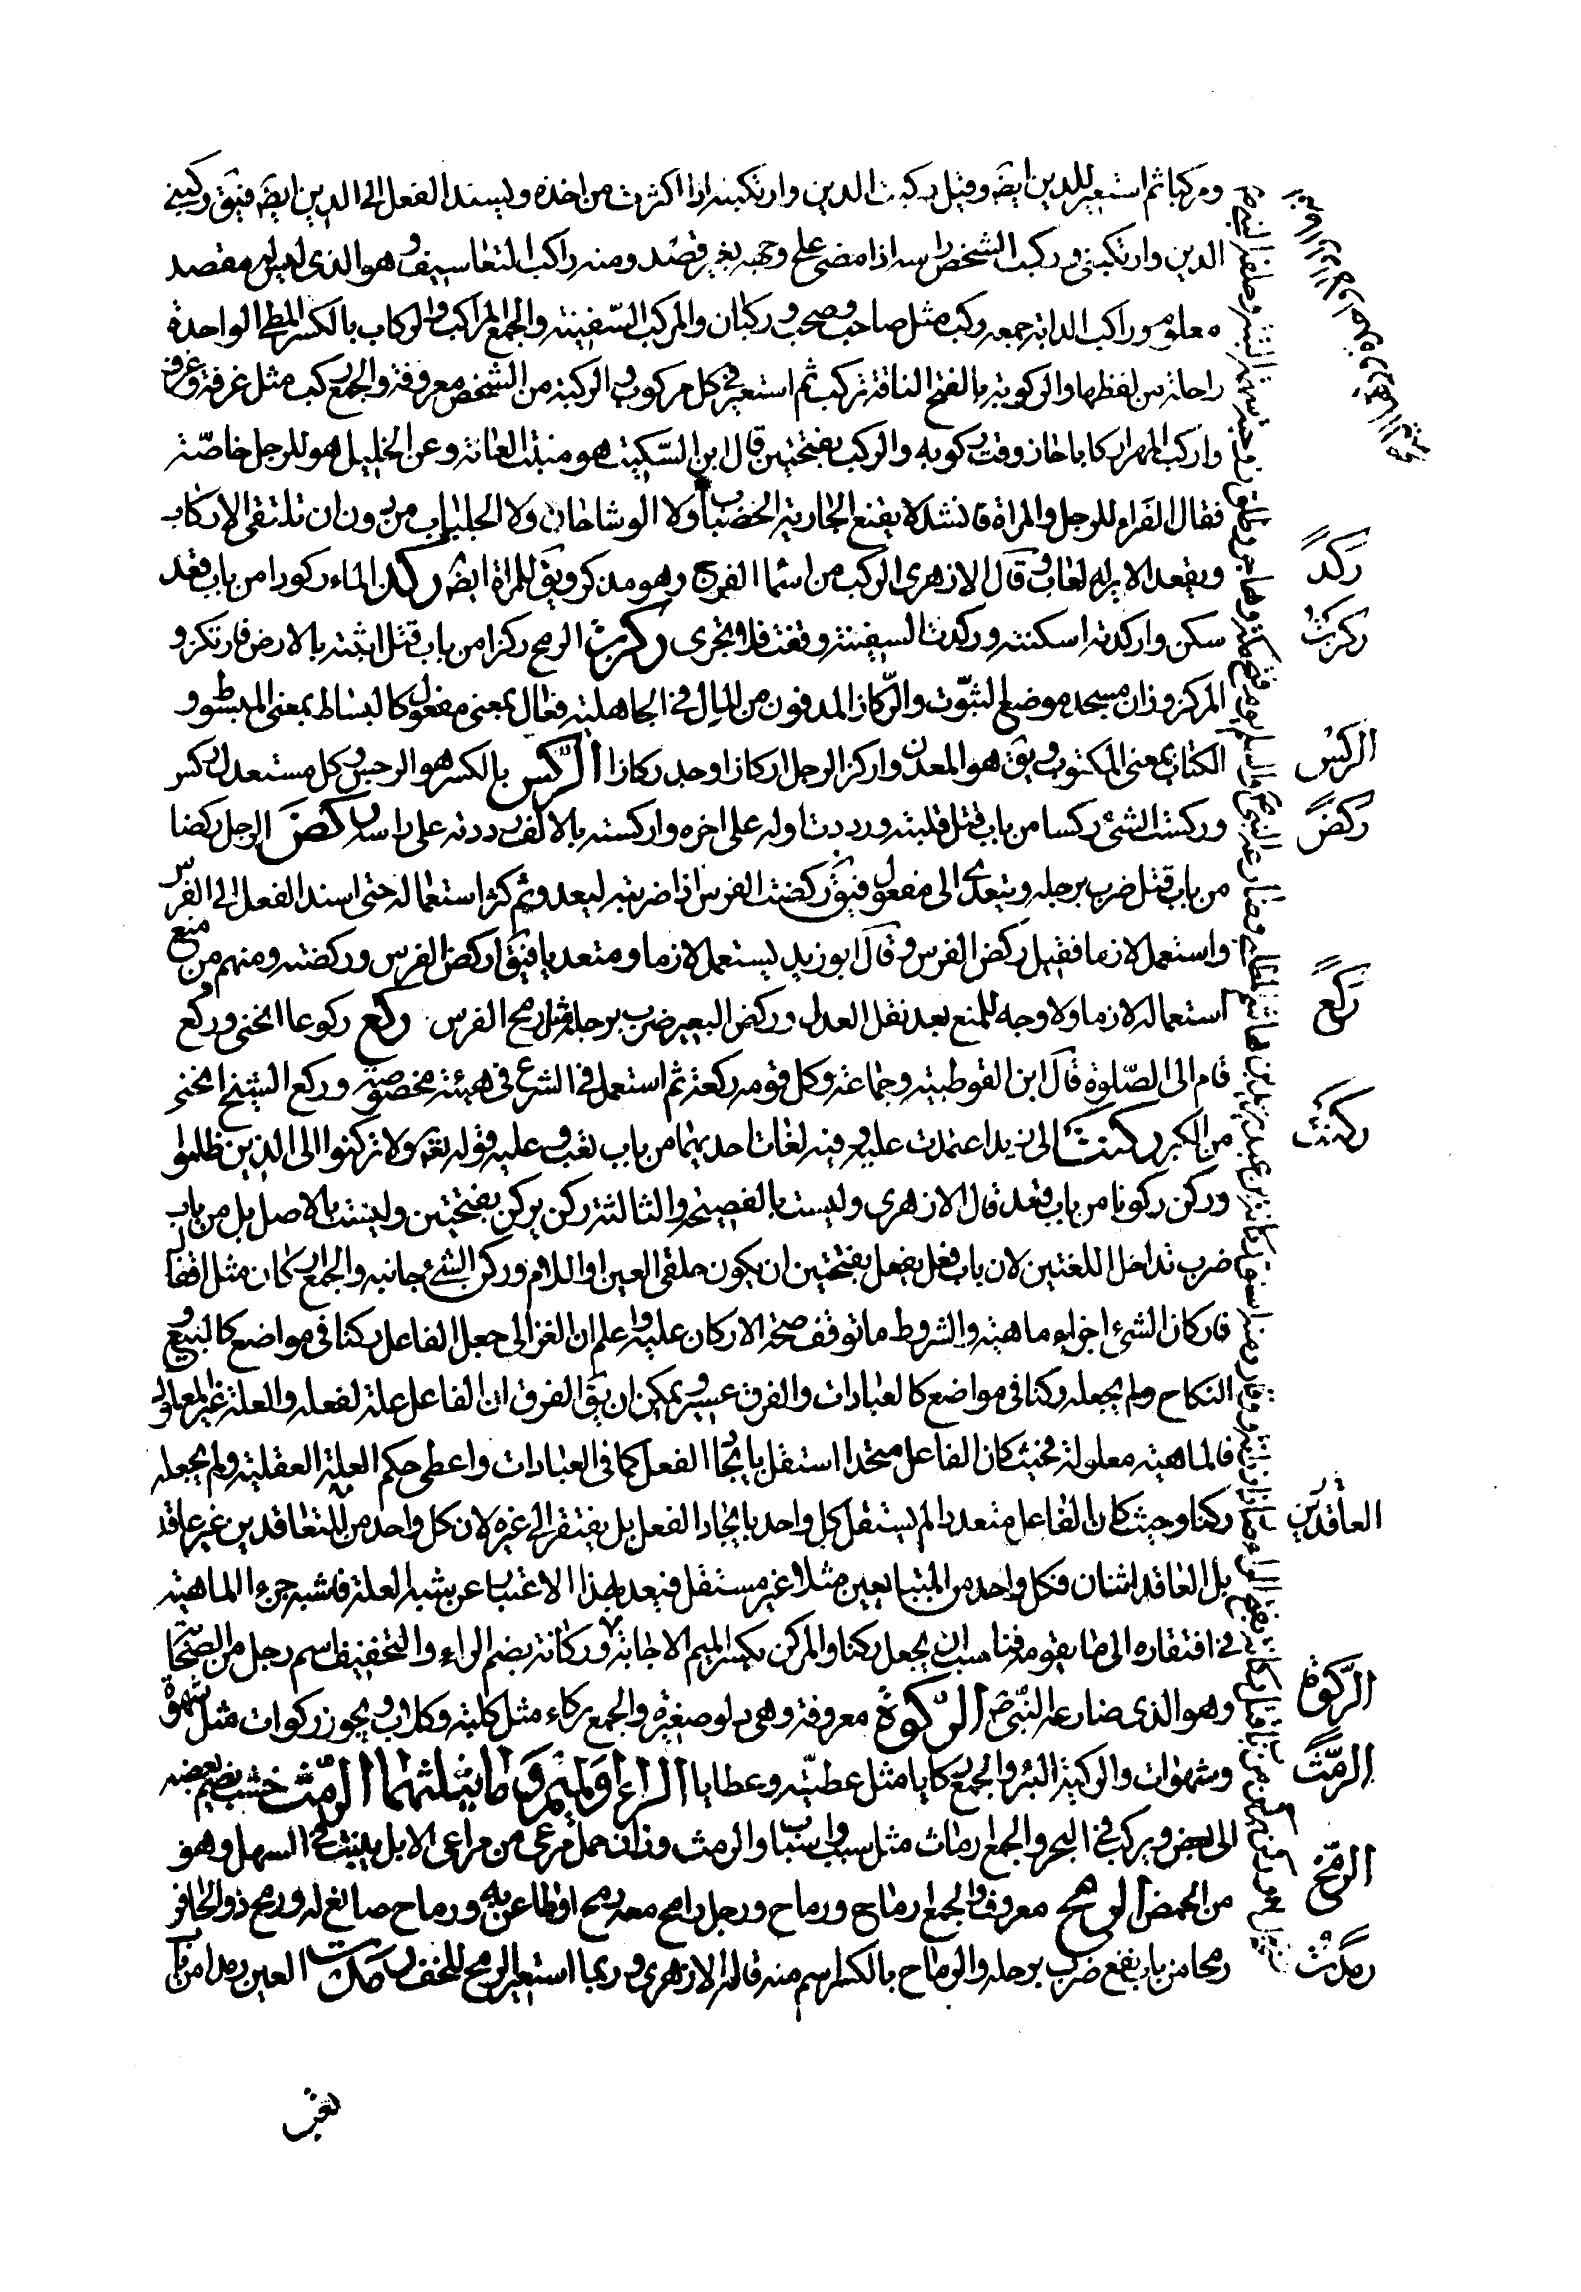 ومركبا ثم استعير للدين ايضَ وقيل ركبت الدين وارتكبته اذا اكثرت من اخذه ويسند الفعل الى الدين ايضَ فيقَ ركبني
الدين وارتكبني وركب الشخص راسه اذا مضى على وجهه بغير قصد ومنه راكب التعاسيف وهو الذي ليس له مقصد
معلوم وراكب الدابة جمعه ركب مثل صاحب وصحب وركبان والمركب السّفينة والجمع المراكب والركاب بالكسر المطى الواحدة
راحلة من لفظها والركوبة بالفتح الناقة تركب ثم استعير فى كل مركوب والركبة من الشخص معروفة والجمع ركب مثل غرفة وغرف
واركب المهر اركابا حان وقت ركوبه والركب بفتحتين قال ابن السّكيت هو منبت العانة وعن الخليل هو للرجل خاصّة
فقال الفراء للرجل والمراة فانشد لا يقنع الجارية الخضاب ولا الوشاحان ولا الجلباب من دون ان تلتقى الاركاب
ويقعد الاير له لعاب وقال الازهرى الركب من اسما الفرج وهو مذكر ويقَ للمراة ايضَ ركد الماء ركودا من باب قعد
سكن واركدته اسكنته وركدت السفينة وقفت فلا تجرى ركزت الرمح ركزا من باب قتل اثبته بالارض فارتكز و
المركز وزان مسجد موضع الثبّوت والرّكاز المدفون من المال فى الجاهلية فعال بمعنى مفعول كالبساط بمعنى المبسوط و
الكتاب بمعنى المكتوب ويقَ هو المعدن واركز الرجل اركازا وجد ركازا الرّكس بالكسر هو الرجس وكل مستعدل ركس
وركست الشئ ركسا من باب قتل قلبته ورددت اوله على اخره واركسته بالالف رددته على راسه ركض الرجل ركضا
من باب قتل ضرب برجله ويتعدى الى مفعول فيقَ ركضت الفرس اذا ضربته ليعدو ثم كثر استعماله حتى اسند الفعل الى الفرس
واستعمل لازما فقيل ركض الفرس وقال ابو زيد يستعمل لازما ومتعديا فيقَ ركض الفرس وركضته ومنهم من منع
استعماله لازما ولا وجه للمنع بعد نقل العدل وركض البعير ضرب برجله مثل رمح الفرس ركع ركوعا انحنى وركع
قام الى الصّلوة قال ابن القوطية وجماعة وكل قومة ركعة ثم استعمل فى الشرع فى هيئة مخصوصة وركع الشيخ انحنى
من الكبر ركنت الى زيد اعتمدت عليه وفيه لغات احديها من باب تعب وعليه قوله تعَ ولا تركنوا الى الذين ظلموا
وركن ركونا من باب قعد قال الازهرى وليست بالفصيحة والثالثة ركن يركن بفتحتين وليست بالاصل بل من باب
ضرب تداخل اللغتين لان باب فعل يفعل بفتحتين ان يكون حلقى العين او اللام وركن الشئ جانبه والجمع اركان مثل اقفال
فاركان الشئ اجزاء ماهيته والشروط ما توقف صحة الاركان عليه واعلم ان الغزالى جعل الفاعل ركنا فى مواضع كالبيع و
النكاح ولم يجعله ركنا فى مواضع كالعبادات والفرق عسير ويمكن ان يقَ الفرق ان الفاعل علة لفعله والعلة غير المعلول
فالماهية معلولة فحيث كان الفاعل متحدا استقل بايجاد الفعل كما فى العبادات واعطى حكم العلة العقلية ولم يجعله
ركنا وحيث كان الفاعل متعددا لم يستقل كل واحد بايجاد الفعل بل يفتقر الى غيره لان كل واحد من المتعاقدين غير عاقد
بل العاقد اثنان فكل واحد من المتبايعين مثلا غير مستقل فبعد بهذا الاعتبار عن شبه العلة فاشبه جزء الماهية
فى افتقاره الى ما يقومه فناسب ان يجعل ركنا والمركن بكسر الميم الاجانة وركانة بضم الراء والتخفيف اسم رجل من الصحابة
وهو الذى صارعه النّبىّ صَ الرّكوة معروفة وهى دلو صغيرة والجمع ركاء مثل كلبة وكلاب ويجوز ركوات مثل شهوة
وشهوات والركية البئر والجمع ركايا مثل عطيّة وعطايا الراء والميم وما يثلثهما الرّمث خشب يضم بعضه
الى بعض ويركب فى البحر والجمع ارماث مثل سبب واسباب والرمث وزان حمل مرعى من مراعى الابل ينبت فى السهل وهو
من الحمض الرمح معروف والجمع ارماح ورماح ورجل رامح معه رمح او طاعن به ورماح صانع له ورمح ذو الحافر
رمحا من باب نفع ضرب برجله والرماح بالكسر اسم منه قاله الازهرى وربما استعير الرمح للخف رمدت العين رمدا من باب
ركدَ
ركزتُ
الركسُ
ركضَ
ركعَ
ركنتُ
العاقدين
الرّكوة
الرّمث
الرّمح
رمدتْ
تعب